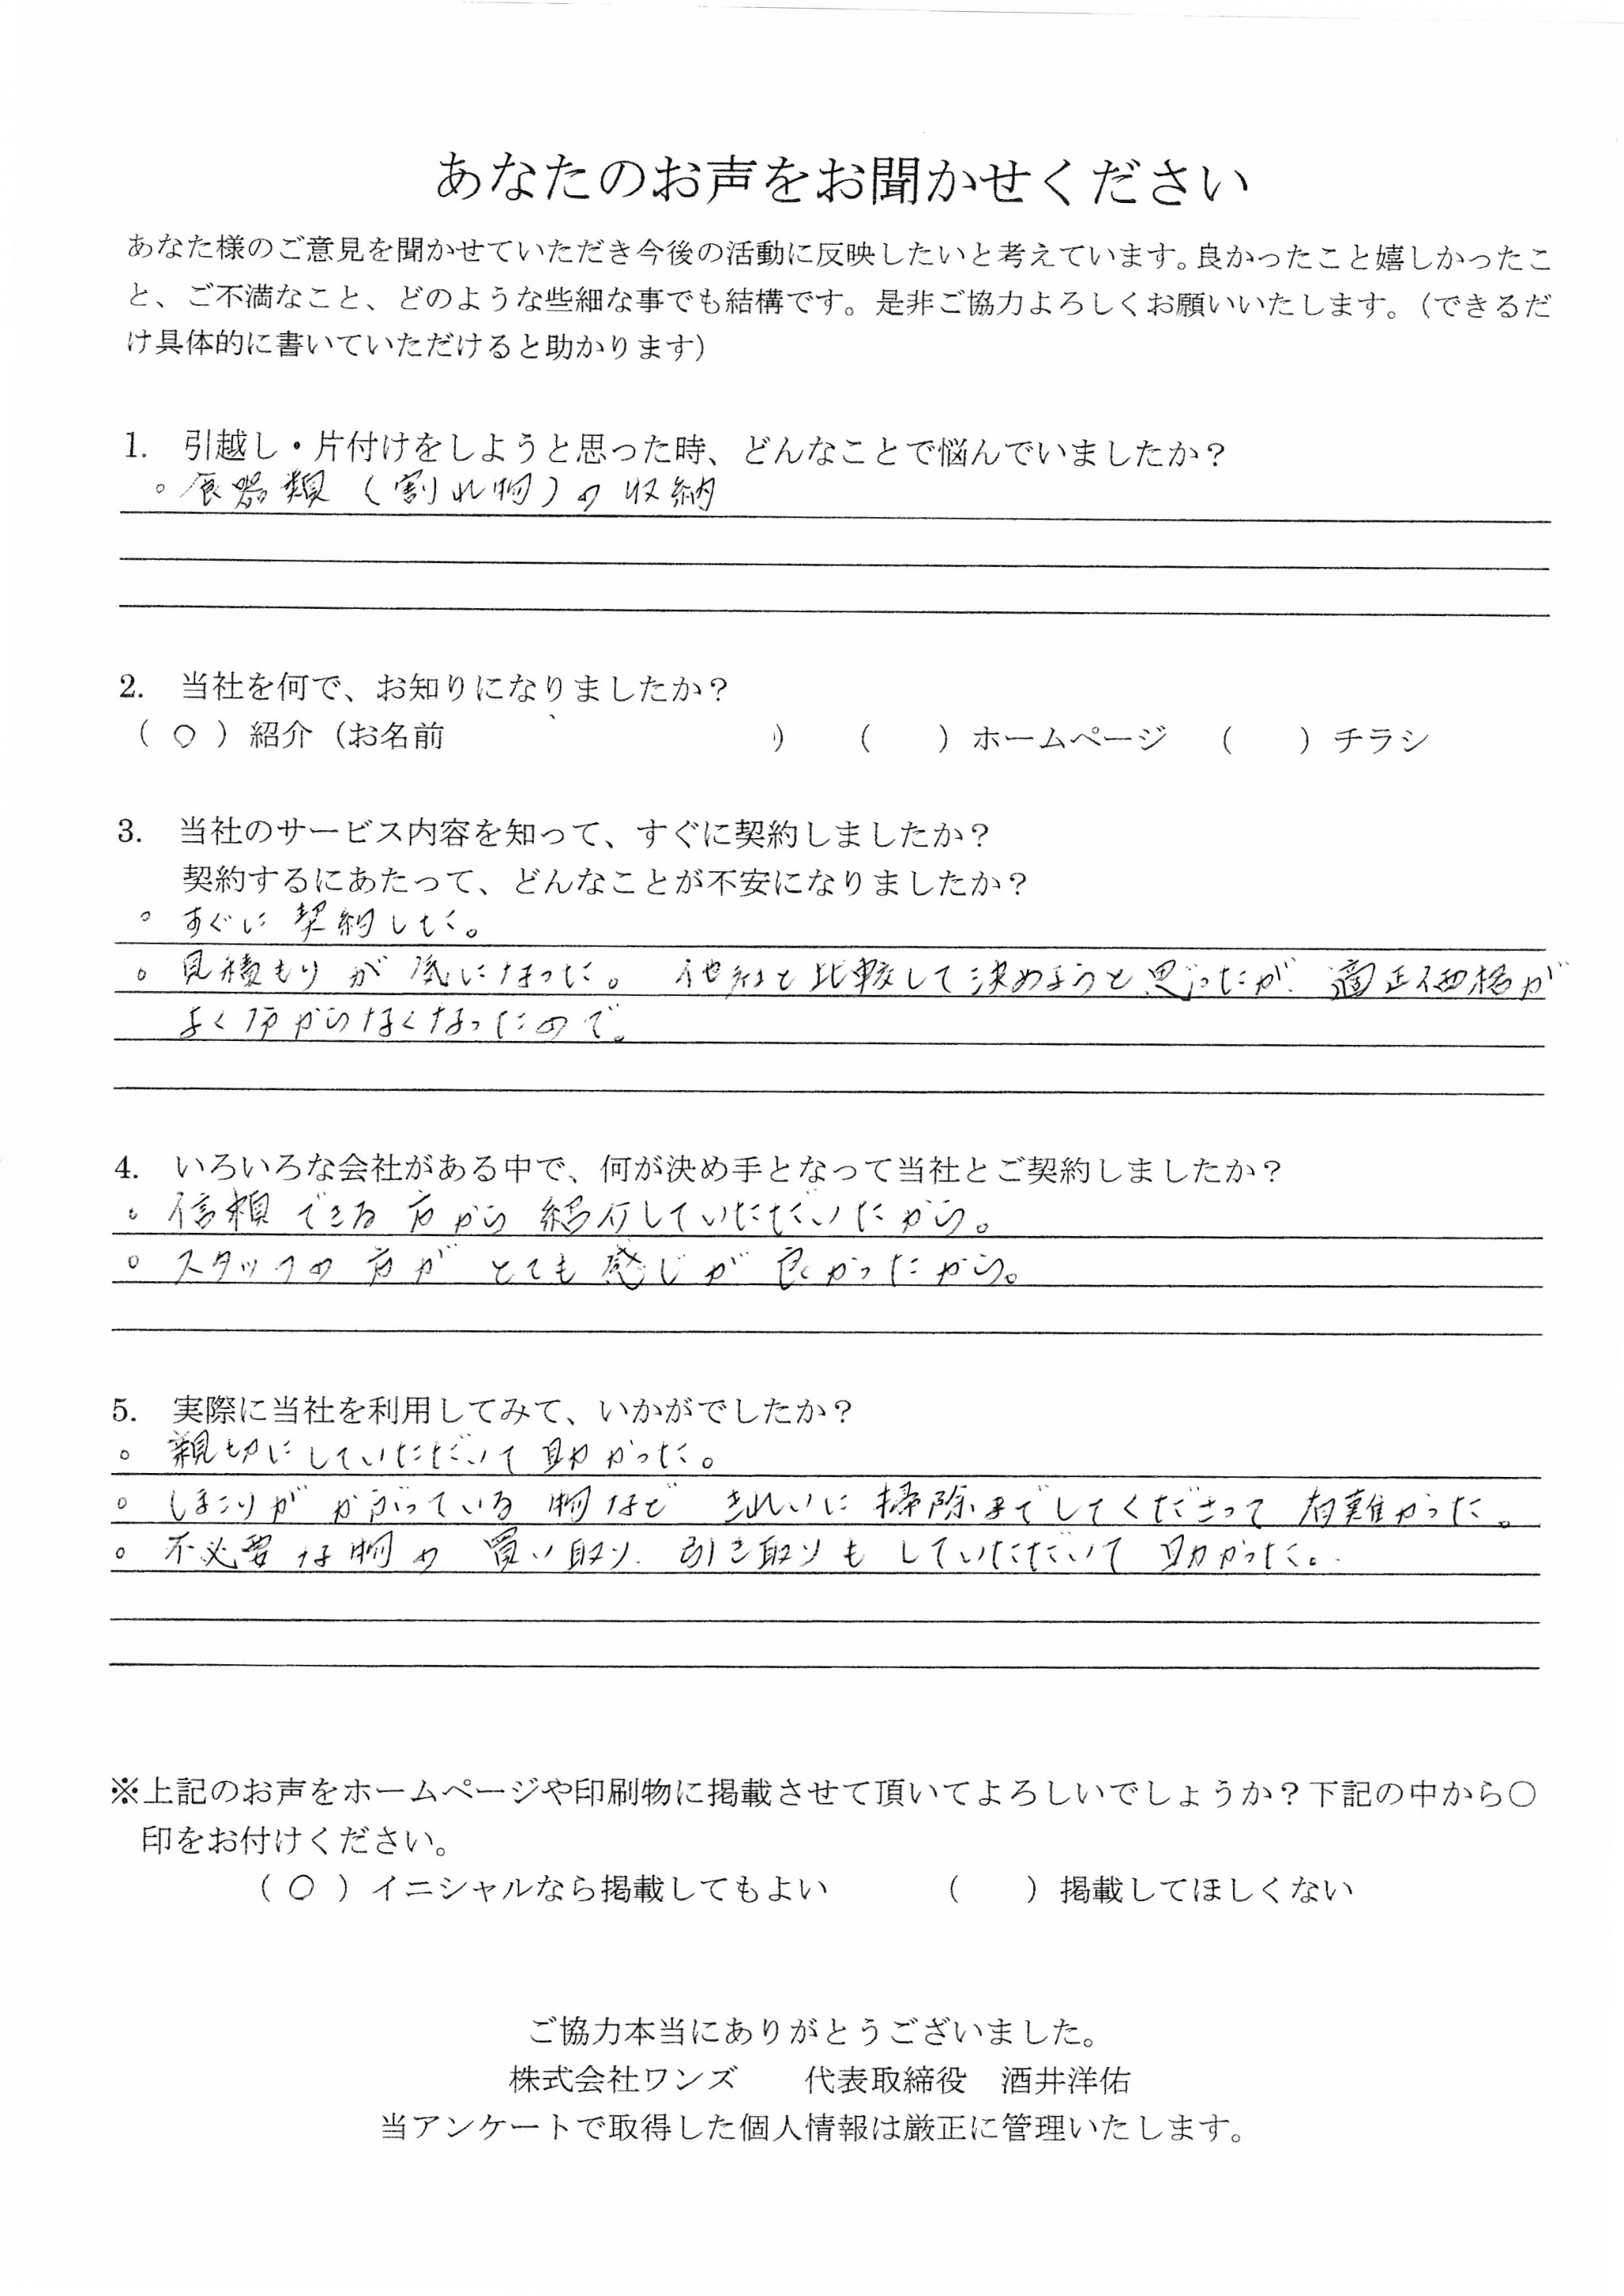 あなたのお声をお聞かせください
あなた様のご意見を聞かせていただき今後の活動に反映したいと考えています。良かったこと嬉しかったこ
と、ご不満なこと、どのような些細な事でも結構です。是非ご協力よろしくお願いいたします。（できるだ
け具体的に書いていただけると助かります）
1. 引越し・片付けをしようと思った時、どんなことで悩んでいましたか？
。食器類（割れ物）の収納
2. 当社を何で、お知りになりましたか？
（ ○ ）紹介（お名前 ） （ ）ホームページ （ ）チラシ
3. 当社のサービス内容を知って、すぐに契約しましたか？
契約するにあたって、どんなことが不安になりましたか？
。すぐに契約した。
。見積もりが気になった。 他社と比較して決めようと思ったが、適正価格が
よく分からなくなったので。
4. いろいろな会社がある中で、何が決め手となって当社とご契約しましたか？
。信頼できる方から紹介していただいたから。
。スタッフの方がとても感じが良かったから。
5. 実際に当社を利用してみて、いかがでしたか？
。親切にしていただいて助かった。
。ほこりがかぶっている物など きれいに掃除までしてくださって有難かった。
。不必要な物の買い取り、引き取りもしていただいて助かった。
※上記のお声をホームページや印刷物に掲載させて頂いてよろしいでしょうか？下記の中から〇
印をお付けください。
（ ○ ）イニシャルなら掲載してもよい （ ）掲載してほしくない
ご協力本当にありがとうございました。
株式会社ワンズ 代表取締役 酒井洋佑
当アンケートで取得した個人情報は厳正に管理いたします。